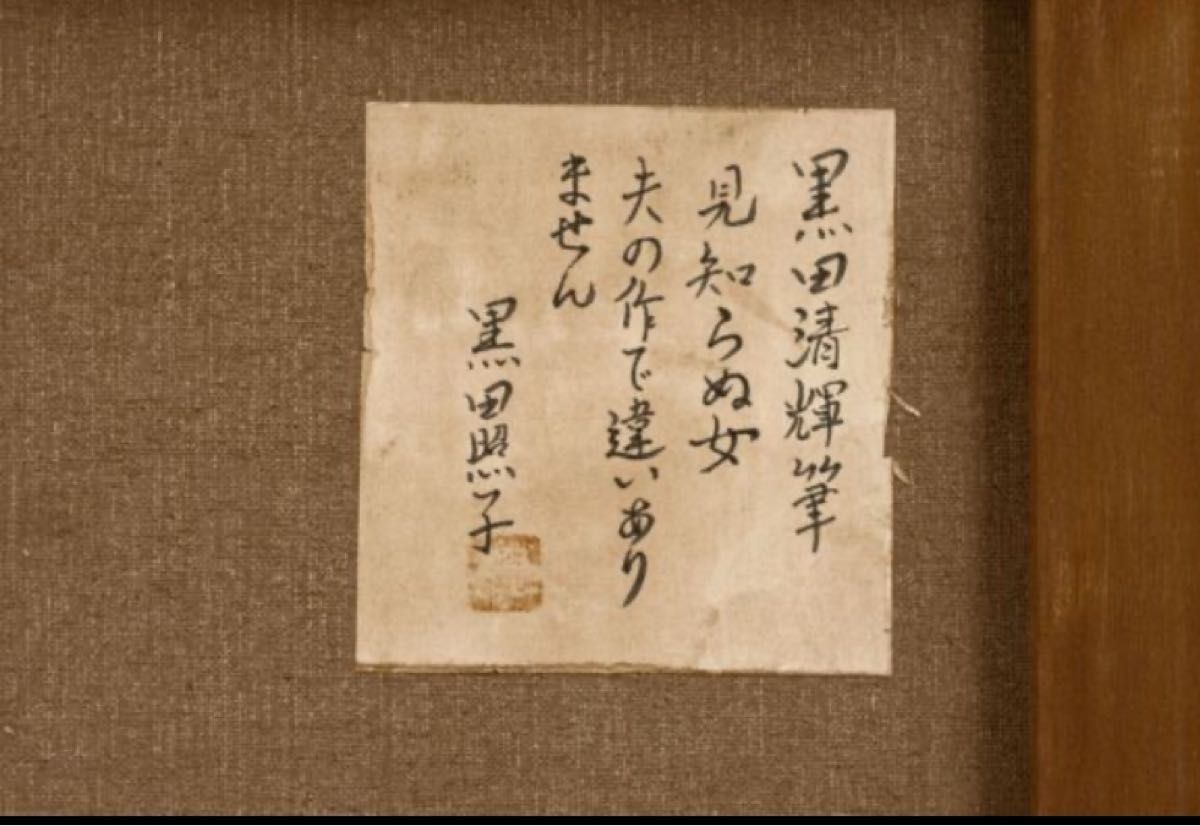 黒田清輝筆
見知らぬ女
夫の作で違いあり
ません
黒田照子